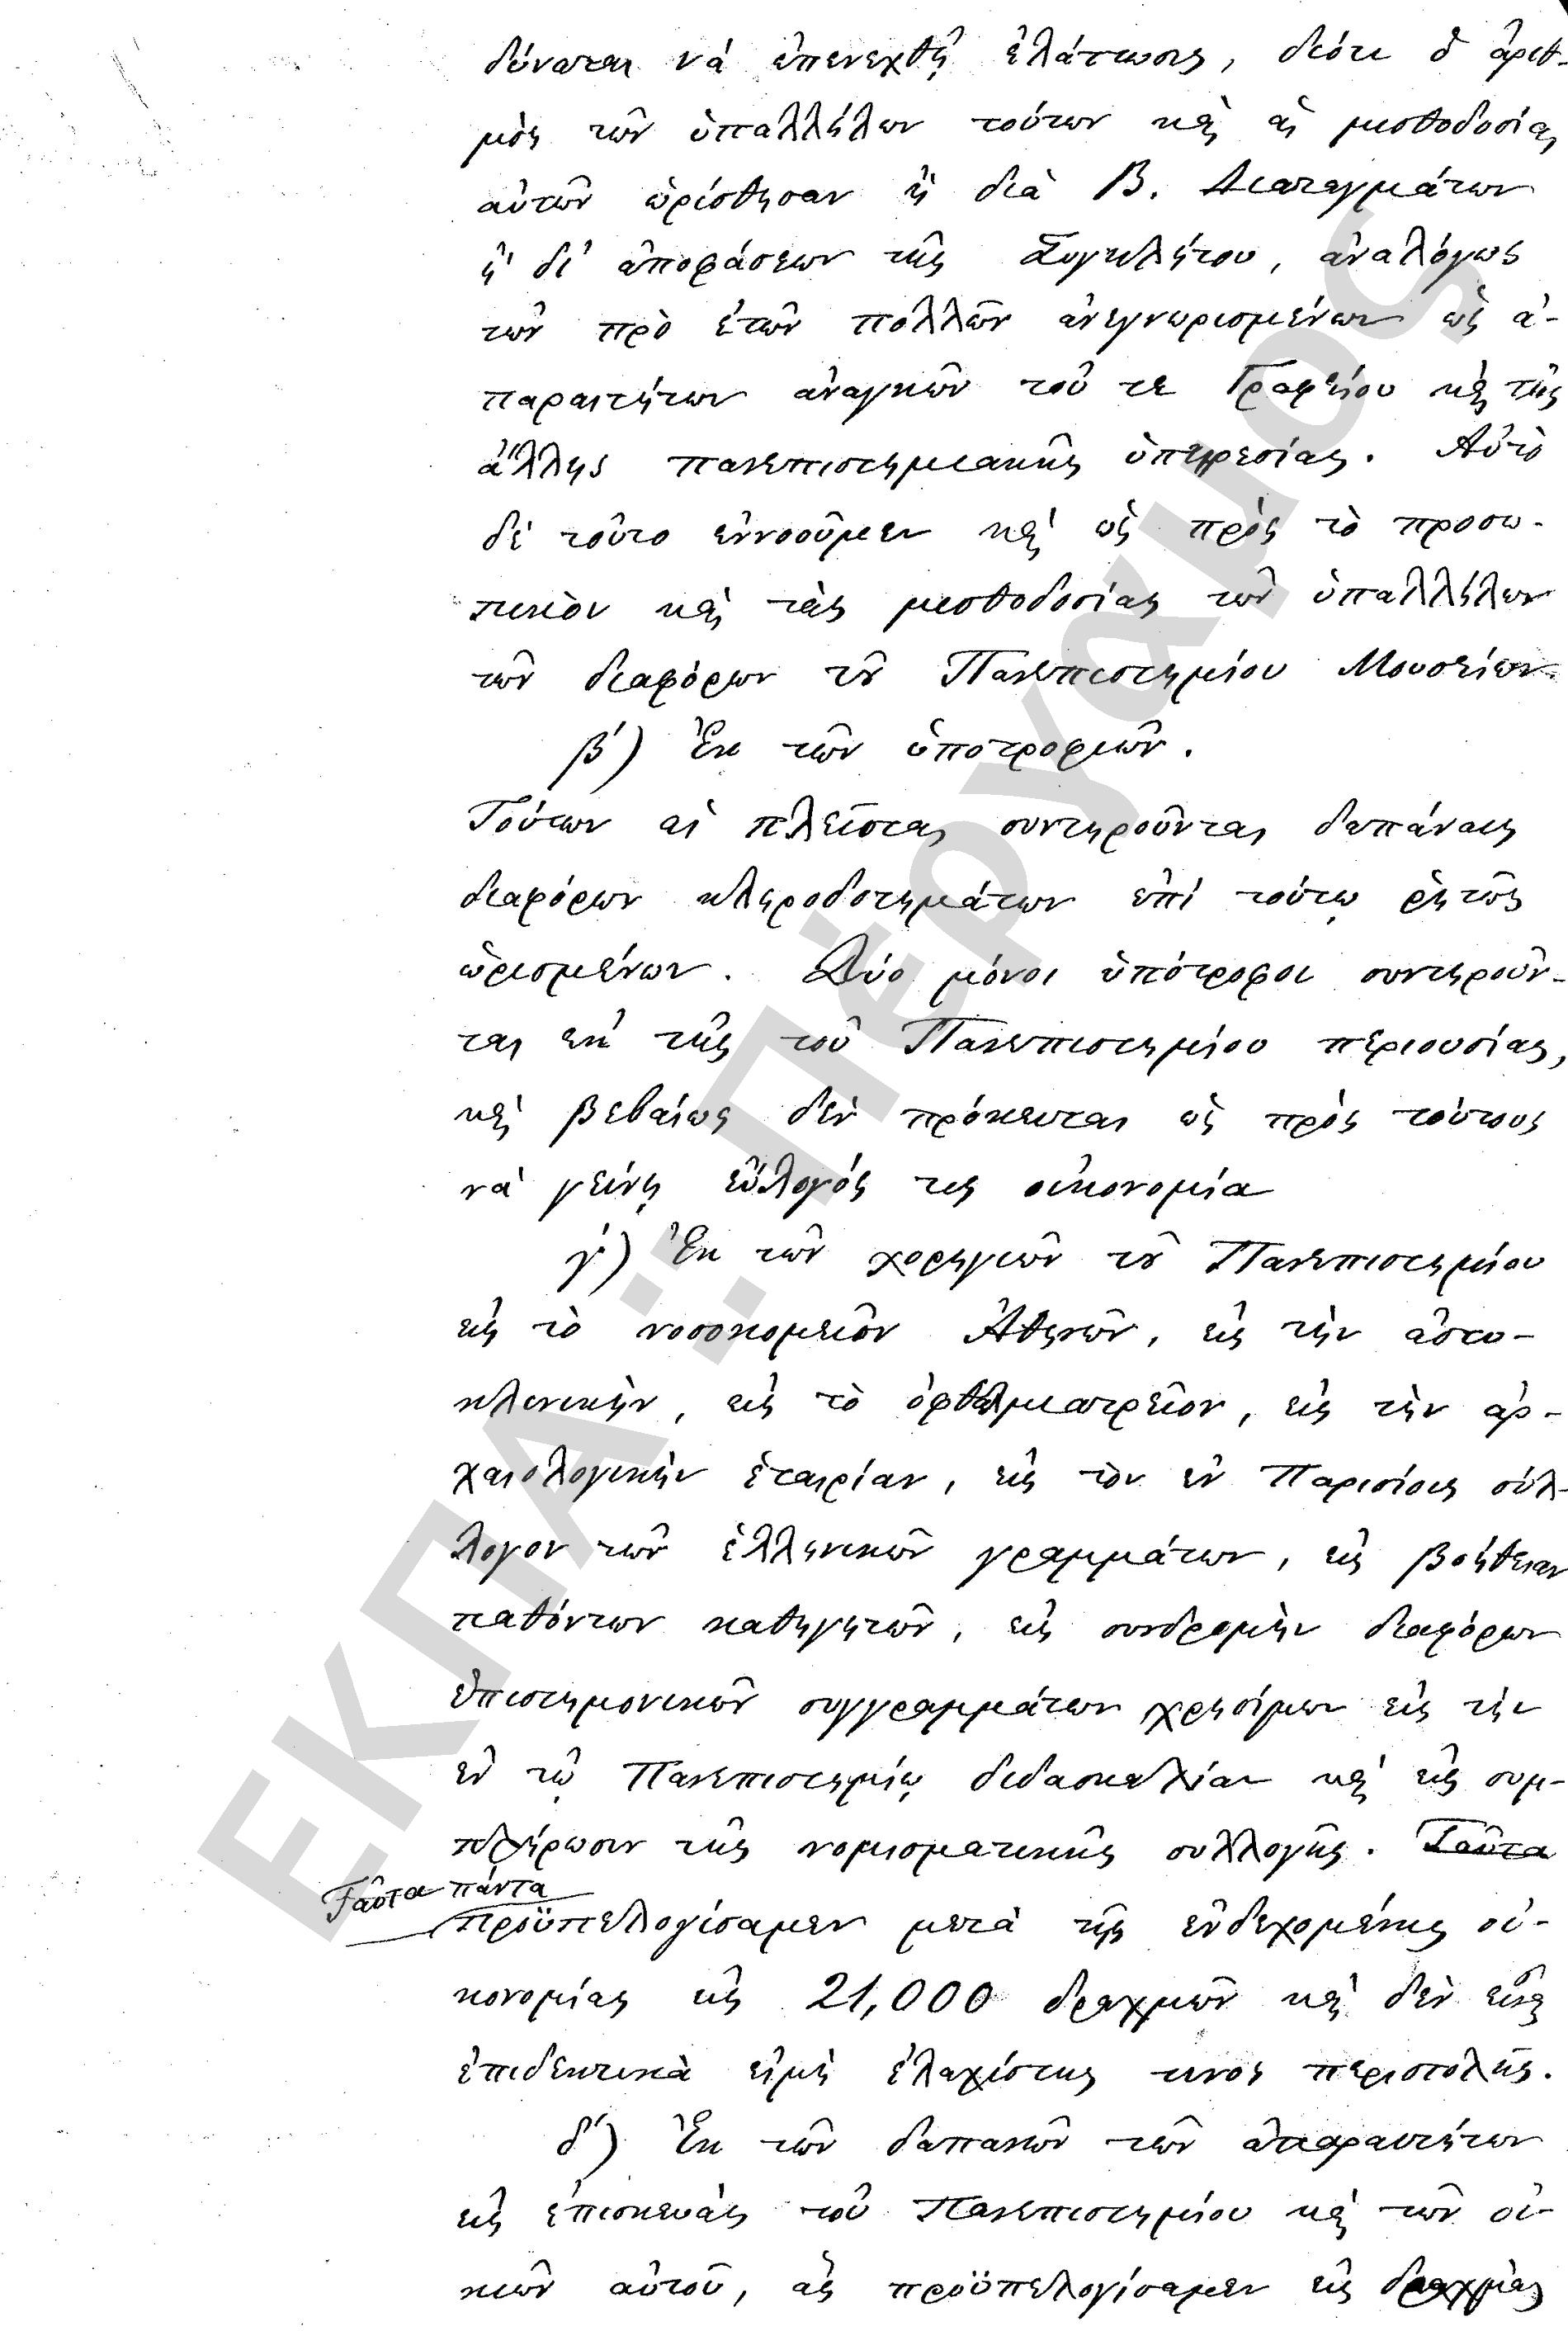 δύναται νὰ ἐπενεχθῇ ἐλάττωσις, διότι ὁ ἀριθ-
μὸς τῶν ὑπαλλήλων τούτων καὶ αἱ μισθοδοσίαι
αὐτῶν ὡρίσθησαν ἢ διὰ Β. Διαταγμάτων
ἢ δι' ἀποφάσεων τῆς Συγκλήτου, ἀναλόγως
τῶν πρὸ ἐτῶν πολλῶν ἀνεγνωρισμένων ὡς ἀ-
παραιτήτων ἀναγκῶν τοῦ τε Γραφείου καὶ τῆς
ἄλλης πανεπιστημιακῆς ὑπηρεσίας. Αὐτὸ
δὲ τοῦτο ἐννοοῦμεν καὶ ὡς πρὸς τὸ προσω-
πικὸν καὶ τὰς μισθοδοσίας τῶν ὑπαλλήλων
τῶν διαφόρων τοῦ Πανεπιστημίου Μουσείων.
β') Ἐκ τῶν ὑποτροφιῶν.
Τούτων αἱ πλεῖσται συντηροῦνται δαπάναις
διαφόρων κληροδοτημάτων ἐπὶ τούτῳ ῥητῶς
ὡρισμένων. Δύο μόνοι ὑπότροφοι συντηροῦν-
ται ἐκ τῆς τοῦ Πανεπιστημίου περιουσίας,
καὶ βεβαίως δὲν πρόκειται ὡς πρὸς τούτους
νὰ γείνῃ εὔλογός τις οἰκονομία
γ') Ἐκ τῶν χορηγιῶν τοῦ Πανεπιστημίου
εἰς τὸ νοσοκομεῖον Ἀθηνῶν, εἰς τὴν ἀστυ-
κλινικὴν, εἰς τὸ ὀφθαλμιατρεῖον, εἰς τὴν ἀρ-
χαιολογικὴν ἑταιρίαν, εἰς τὸν ἐν Παρισίοις σύλ-
λογον τῶν ἑλληνικῶν γραμμάτων, εἰς βοήθειαν
παθόντων καθηγητῶν, εἰς συνδρομὴν διαφόρων
ἐπιστημονικῶν συγγραμμάτων χρησίμων εἰς τὴν
ἐν τῷ Πανεπιστημίῳ διδασκαλίαν καὶ εἰς συμ-
πλήρωσιν τῆς νομισματικῆς συλλογῆς. Ταῦτα
Ταῦτα πάντα
προϋπελογίσαμεν μετὰ τῆς ἐνδεχομένης οἰ-
κονομίας εἰς 21,000 δραχμῶν καὶ δὲν εἶναι
ἐπιδεκτικὰ εἰμὴ ἐλαχίστης τινὸς περιστολῆς.
δ') Ἐκ τῶν δαπανῶν τῶν ἀπαραιτήτων
εἰς ἐπισκευὰς τοῦ Πανεπιστημίου καὶ τῶν οἰ-
κιῶν αὐτοῦ, ἃς προϋπελογίσαμεν εἰς δραχμὰς
ΕΚΠΑ: Πέργαμος